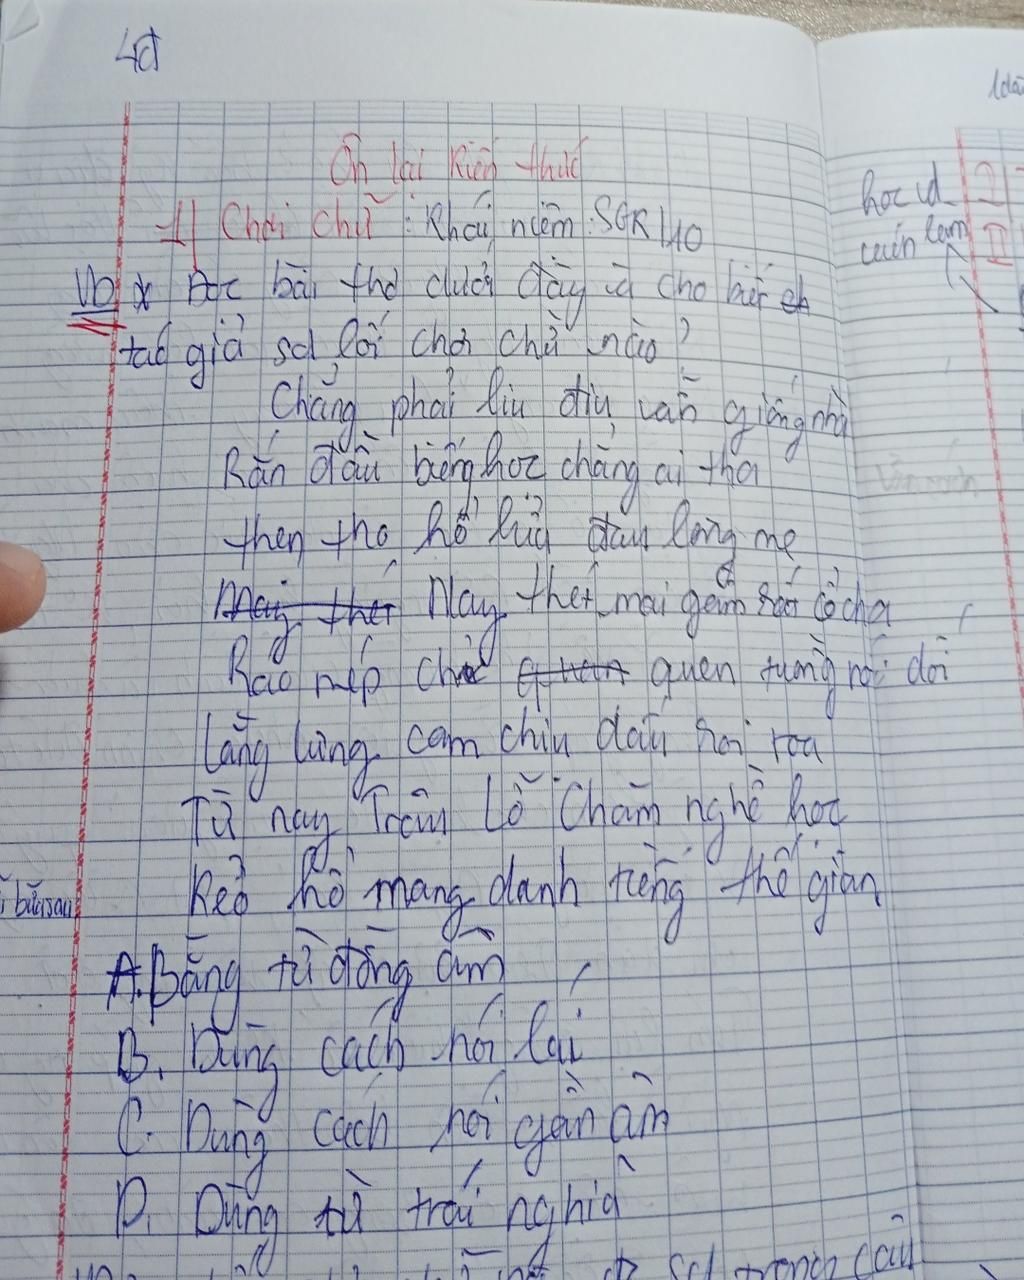 4đ
Ôn lại kiến thức
1) Chơi chữ : Khái niệm : SGK 140
VD * Đọc bài thơ dưới đây và cho biết
tác giả sd lối chơi chữ nào?
Chẳng phải liu điu vẫn giống nhà
Rắn đầu biếng học chẳng ai tha
then tho hổ lửa đau lòng mẹ
Nay thét mai gầm rát cổ cha
Ráo mép chỉ quen tuồng nói dối
Lằng lưng cam chịu dấu roi roa
Từ nay Trâu Lỗ Chăm nghề học
Kẻo hổ mang danh tiếng thế gian
A. Bằng từ đồng âm
B. Dùng cách nói lái
C. Dùng cách nói gần âm
D. Dùng từ trái nghĩa
sd trong câu
học vd
cuốn lem
I
II
bữa sau